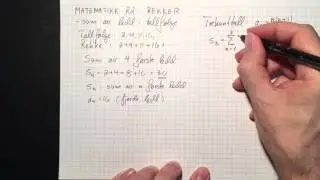 MATEMATIKK R2 REKKER
- sum av ledd i tallfølge
Tallfølge: 2, 4, 8, 16
Rekke: 2+4+8+16+
Sum av 4 første ledd
S₄ = 2+4+8+16 = 30
Sₙ: sum av n første ledd
a₄ = 16 (fjerde ledd)
Trekanttall: aₙ =
S₃ = Σ